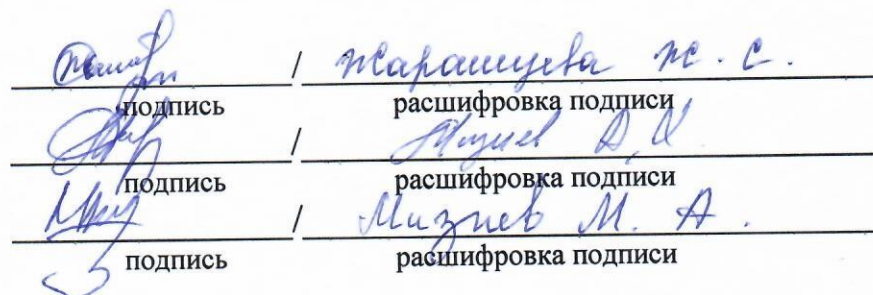 / Жарашуева Ж. С.
подпись расшифровка подписи
/ А.Х
подпись расшифровка подписи
/ Мизиев М. А.
подпись расшифровка подписи